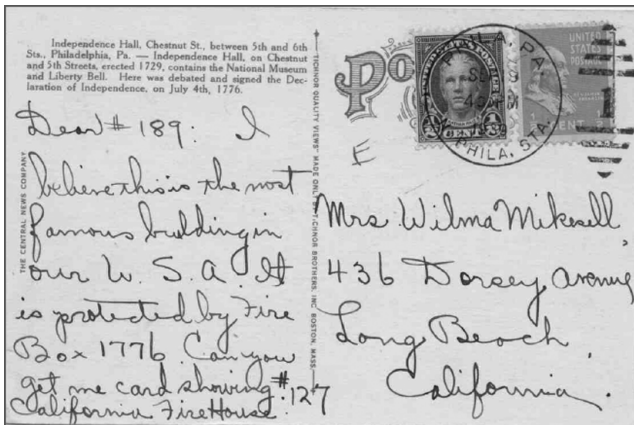 Independence Hall, Chestnut St., between 5th and 6th
Sts., Philadelphia, Pa. — Independence Hall, on Chestnut
and 5th Streets, erected 1729, contains the National Museum
and Liberty Bell. Here was debated and signed the Dec-
laration of Independence, on July 4th, 1776.
Dear #189: I
believe this is the most
famous building in
our U.S.A. It
is protected by Fire
Box 1776. Can you
get me card showing #127
California Fire House.
THE CENTRAL NEWS COMPANY
"TICHNOR QUALITY VIEWS" MADE ONLY BY TICHNOR BROTHERS, INC. BOSTON, MASS.
Po
E
UNITED STATES POSTAGE
CENT
UNITED
STATES
POSTAGE
1
CENT
PHILA, PA.
PHILA. STA.
Mrs. Wilma Mikesell,
436 Dorsey Avenue
Long Beach,
California.